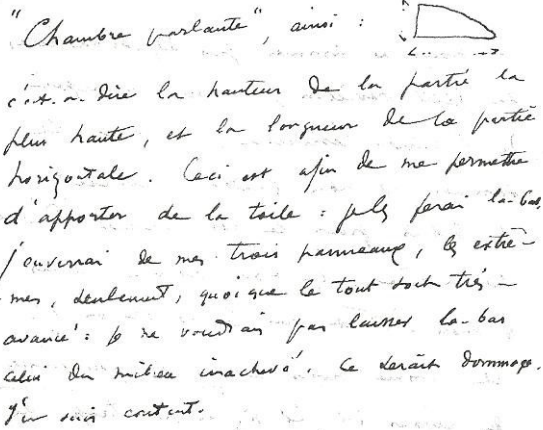 "Chambre parlante", ainsi :
c'est-à-dire la hauteur de la partie la
plus haute, et la longueur de la partie
horizontale. Ceci est afin de me permettre
d'apporter de la toile : je les ferai là-bas,
de mes trois panneaux, les extrê-
mes, seulement, quoique le tout soit très
avancé : je ne voudrais pas laisser là-bas
celui du milieu inachevé. Ce serait dommage.
J'en suis content.